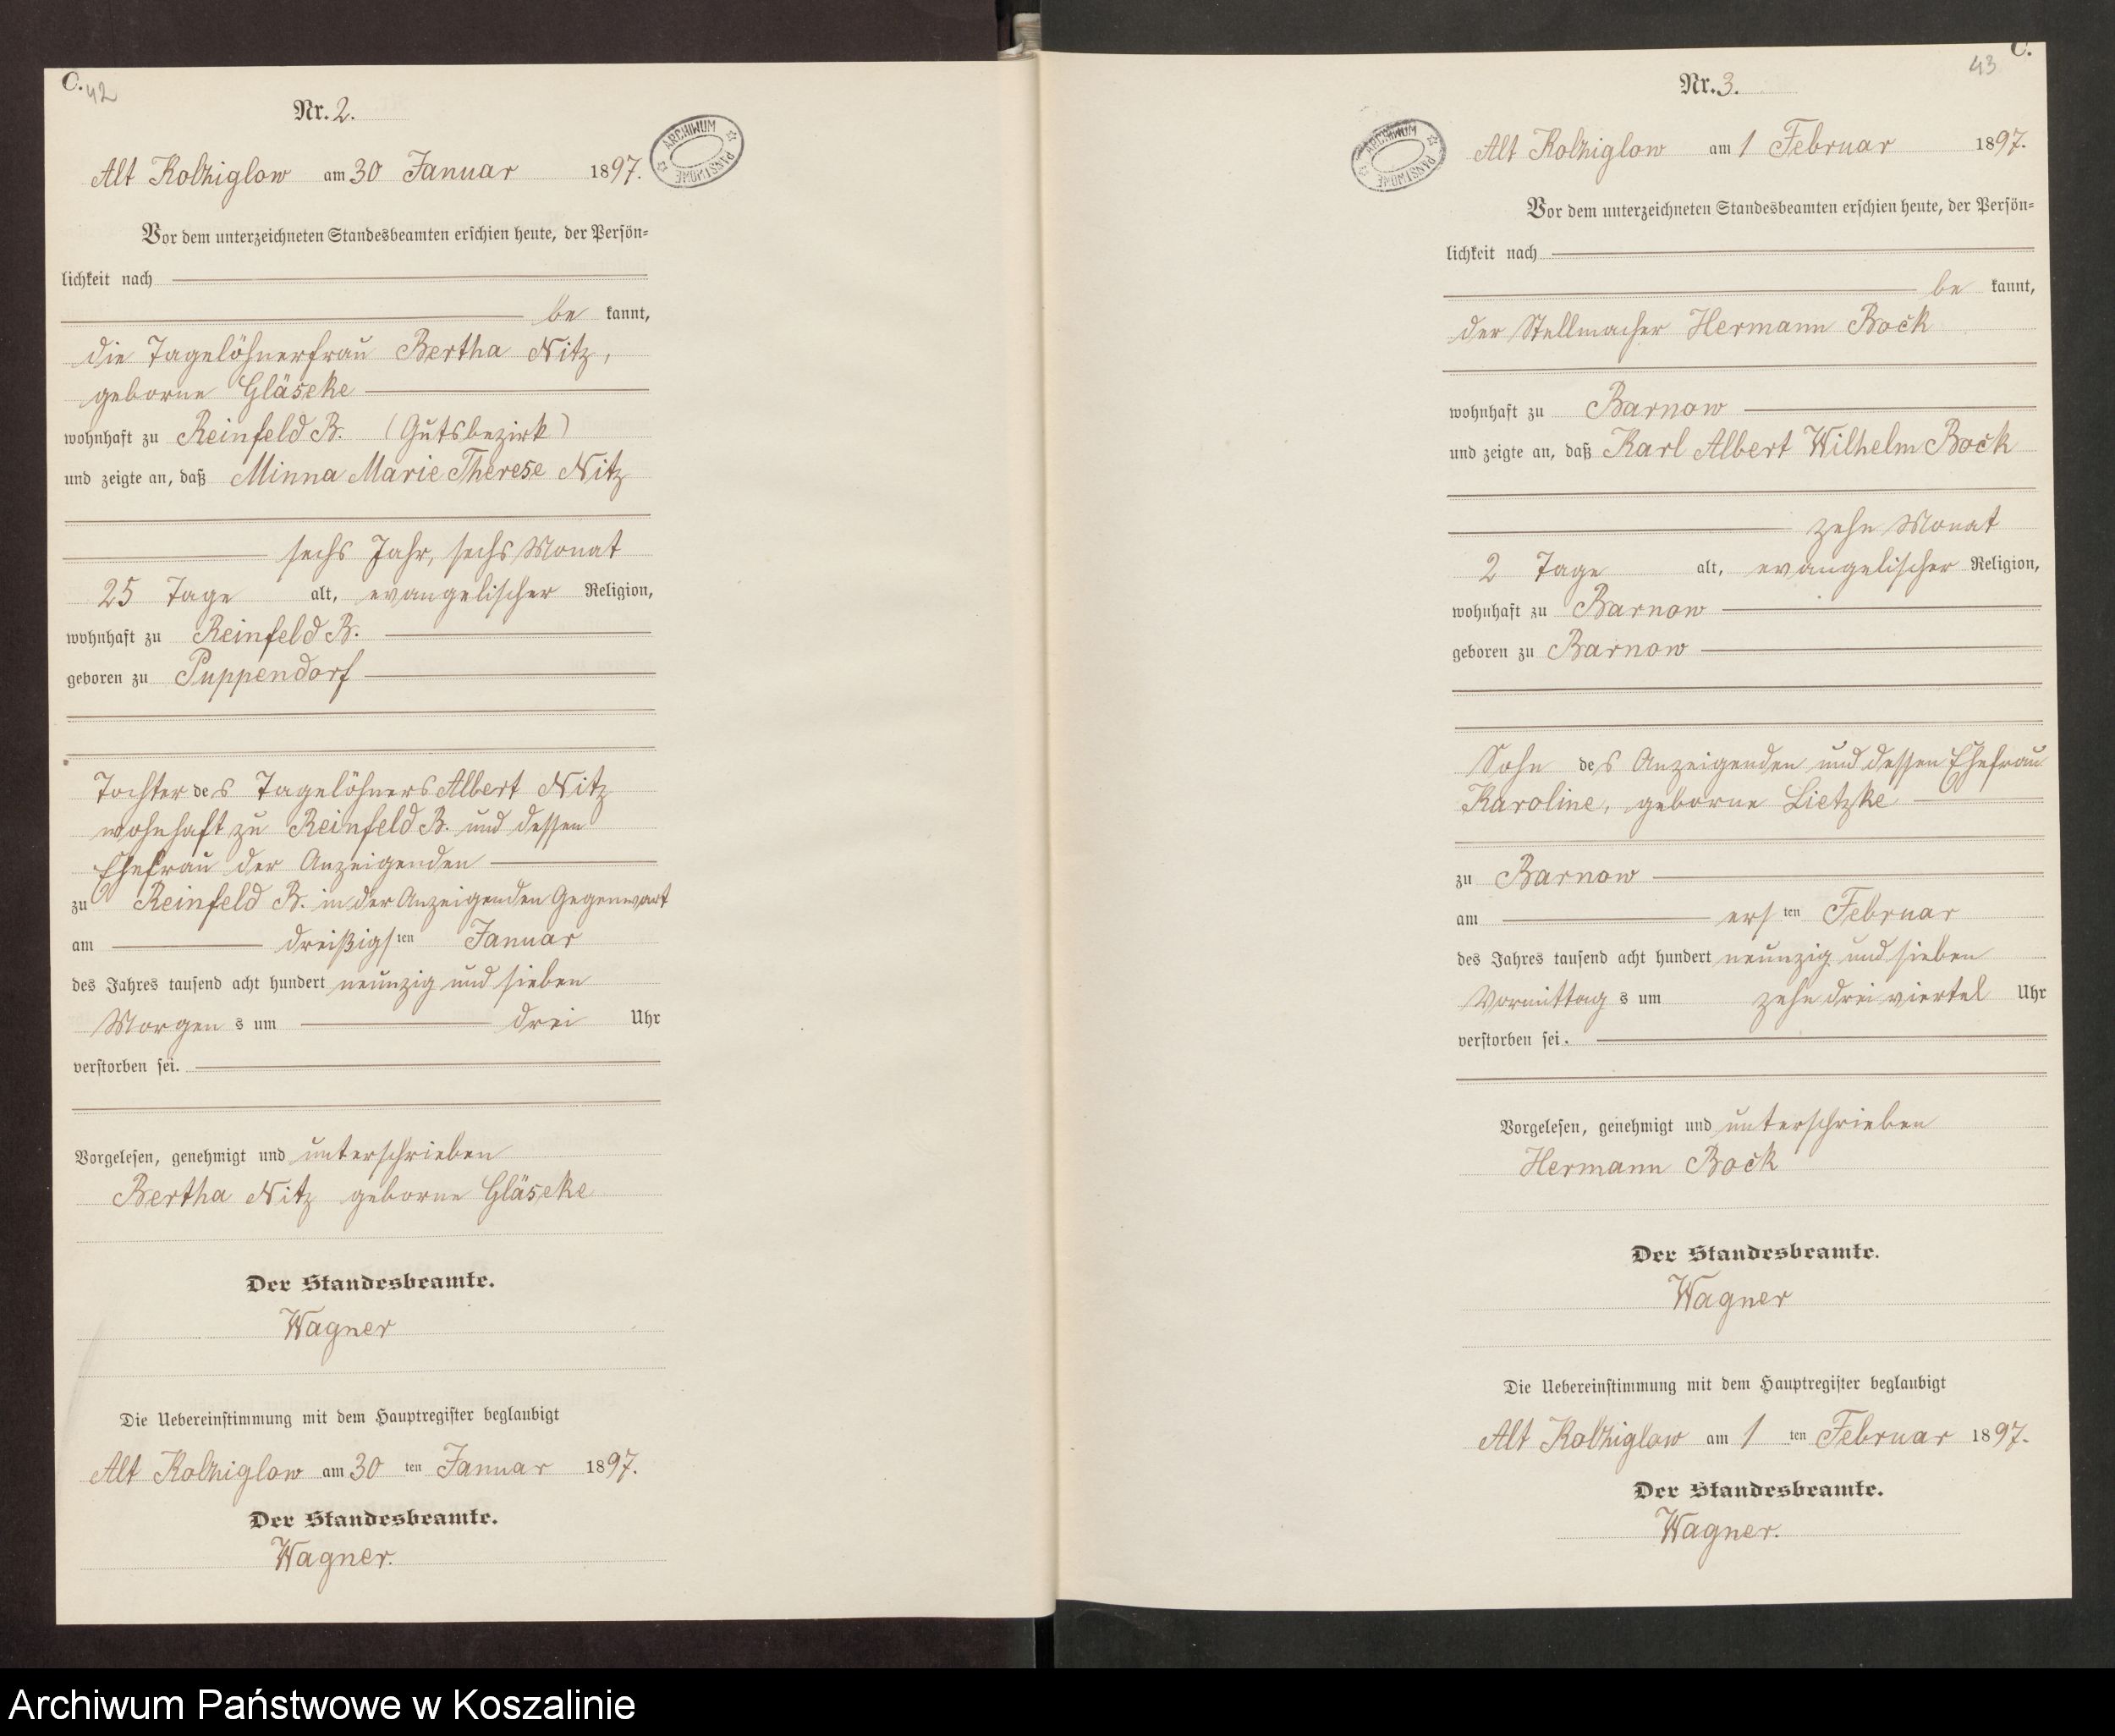 C.
42
Nr. 2.
ARCHIWUM PAŃSTWOWE
Alt Kolziglow am 30 Januar 1897.
Vor dem unterzeichneten Standesbeamten erschien heute, der Persön-
lichkeit nach
be kannt,
die Tagelöhnerfrau Bertha Nitz,
geborne Gläseke
wohnhaft zu Reinfeld B. (Gutsbezirk)
und zeigte an, daß Minna Marie Therese Nitz
sechs Jahr, sechs Monat
25 Tage alt, evangelischer Religion,
wohnhaft zu Reinfeld B.
geboren zu Puppendorf
Tochter des Tagelöhners Albert Nitz
wohnhaft zu Reinfeld B. und dessen
Ehefrau der Anzeigenden
zu Reinfeld B. in der Anzeigenden Gegenwart
am dreißigsten Januar
des Jahres tausend acht hundert neunzig und sieben
Morgens um drei Uhr
verstorben sei.
Vorgelesen, genehmigt und unterschrieben
Bertha Nitz geborne Gläseke
Der Standesbeamte.
Wagner
Die Uebereinstimmung mit dem Hauptregister beglaubigt
Alt Kolziglow am 30 ten Januar 1897.
Der Standesbeamte.
Wagner.
C.
43
Nr. 3.
ARCHIWUM PAŃSTWOWE
Alt Kolziglow am 1 Februar 1897.
Vor dem unterzeichneten Standesbeamten erschien heute, der Persön-
lichkeit nach
be kannt,
der Stellmacher Hermann Bock
wohnhaft zu Barnow
und zeigte an, daß Karl Albert Wilhelm Bock
zehn Monat
2 Tage alt, evangelischer Religion,
wohnhaft zu Barnow
geboren zu Barnow
Sohn des Anzeigenden und dessen Ehefrau
Karoline, geborne Lietzke
zu Barnow
am ersten Februar
des Jahres tausend acht hundert neunzig und sieben
Vormittags um zehn drei viertel Uhr
verstorben sei.
Vorgelesen, genehmigt und unterschrieben
Hermann Bock
Der Standesbeamte.
Wagner
Die Uebereinstimmung mit dem Hauptregister beglaubigt
Alt Kolziglow am 1 ten Februar 1897.
Der Standesbeamte.
Wagner.
Archiwum Państwowe w Koszalinie